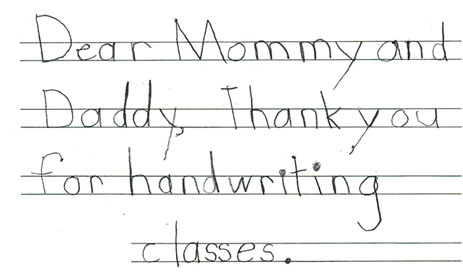 Dear Mommy and
Daddy, Thank you
for handwriting
classes.